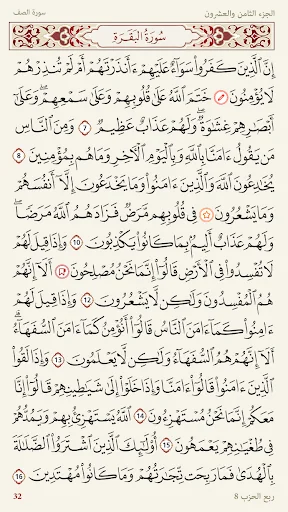 الجزء الثامن والعشرون
سورة الصف
سُورَةُ البَقَرَة
إِنَّ الَّذِينَ كَفَرُوا سَوَاءٌ عَلَيْهِمْ ءَأَنذَرْتَهُمْ أَمْ لَمْ تُنذِرْهُمْ
لَا يُؤْمِنُونَ خَتَمَ اللَّهُ عَلَىٰ قُلُوبِهِمْ وَعَلَىٰ سَمْعِهِمْ ۖ وَعَلَىٰ
أَبْصَارِهِمْ غِشَاوَةٌ ۖ وَلَهُمْ عَذَابٌ عَظِيمٌ 7 وَمِنَ النَّاسِ
مَن يَقُولُ ءَامَنَّا بِاللَّهِ وَبِالْيَوْمِ الْآخِرِ وَمَا هُم بِمُؤْمِنِينَ 8
يُخَادِعُونَ اللَّهَ وَالَّذِينَ ءَامَنُوا وَمَا يَخْدَعُونَ إِلَّا أَنفُسَهُمْ
وَمَا يَشْعُرُونَ فِي قُلُوبِهِم مَّرَضٌ فَزَادَهُمُ اللَّهُ مَرَضًا ۖ
وَلَهُمْ عَذَابٌ أَلِيمٌ بِمَا كَانُوا يَكْذِبُونَ 10 وَإِذَا قِيلَ
لَهُمْ لَا تُفْسِدُوا فِي الْأَرْضِ قَالُوا إِنَّمَا نَحْنُ مُصْلِحُونَ أَلَا إِنَّهُمْ
هُمُ الْمُفْسِدُونَ وَلَٰكِن لَّا يَشْعُرُونَ 12 وَإِذَا قِيلَ لَهُمْ
ءَامِنُوا كَمَا ءَامَنَ النَّاسُ قَالُوا أَنُؤْمِنُ كَمَا ءَامَنَ السُّفَهَاءُ ۗ
أَلَا إِنَّهُمْ هُمُ السُّفَهَاءُ وَلَٰكِن لَّا يَعْلَمُونَ 13 وَإِذَا لَقُوا
الَّذِينَ ءَامَنُوا قَالُوا ءَامَنَّا وَإِذَا خَلَوْا إِلَىٰ شَيَاطِينِهِمْ قَالُوا إِنَّا
مَعَكُمْ إِنَّمَا نَحْنُ مُسْتَهْزِءُونَ 14 اللَّهُ يَسْتَهْزِئُ بِهِمْ وَيَمُدُّهُمْ
فِي طُغْيَانِهِمْ يَعْمَهُونَ 15 أُولَٰئِكَ الَّذِينَ اشْتَرَوُا الضَّلَالَةَ
بِالْهُدَىٰ فَمَا رَبِحَت تِّجَارَتُهُمْ وَمَا كَانُوا مُهْتَدِينَ 16
ربع الحزب 8
32